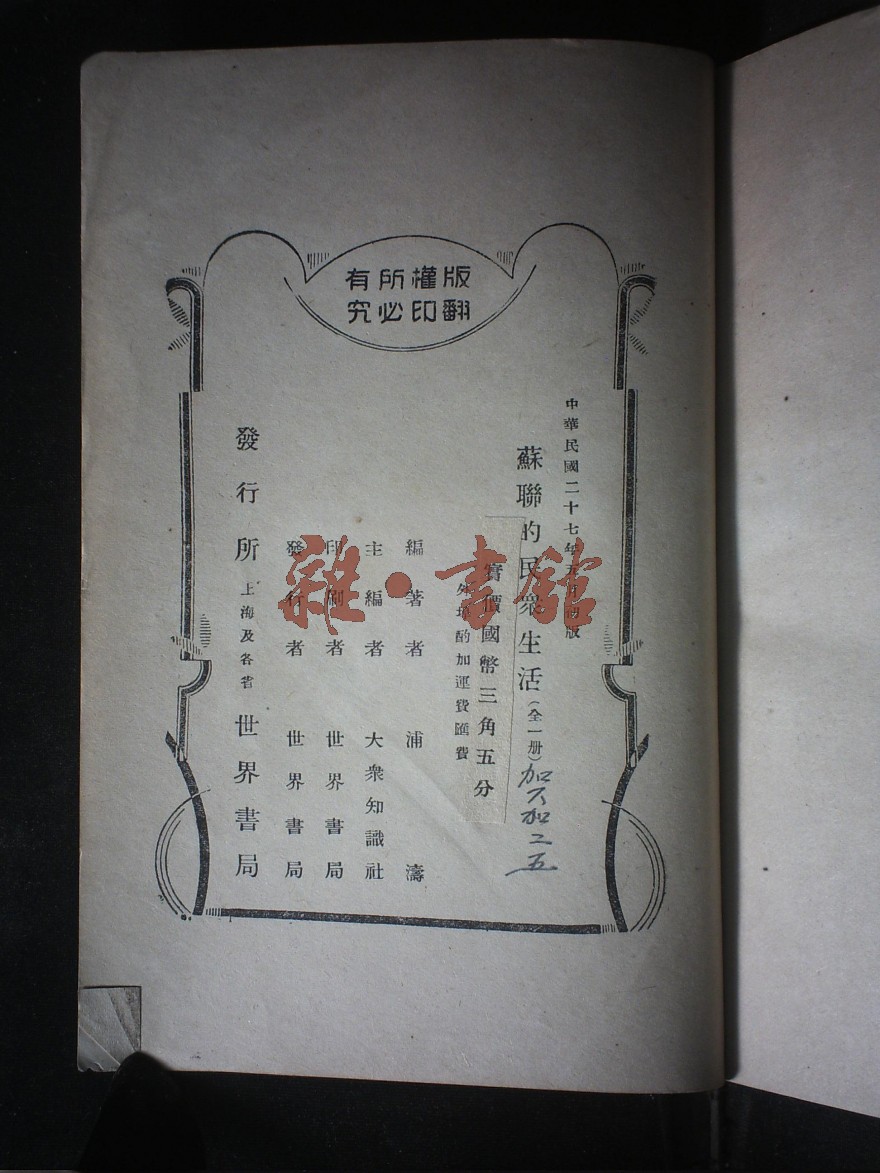 版權所有
翻印必究
中華民國二十七年五月初版
蘇聯的民衆生活(全一册)
實價國幣三角五分
外埠酌加運費匯費
編著者 浦濤
主編者 大衆知識社
印刷者 世界書局
發行者 世界書局
發行所 上海及各省 世界書局
雜·書館